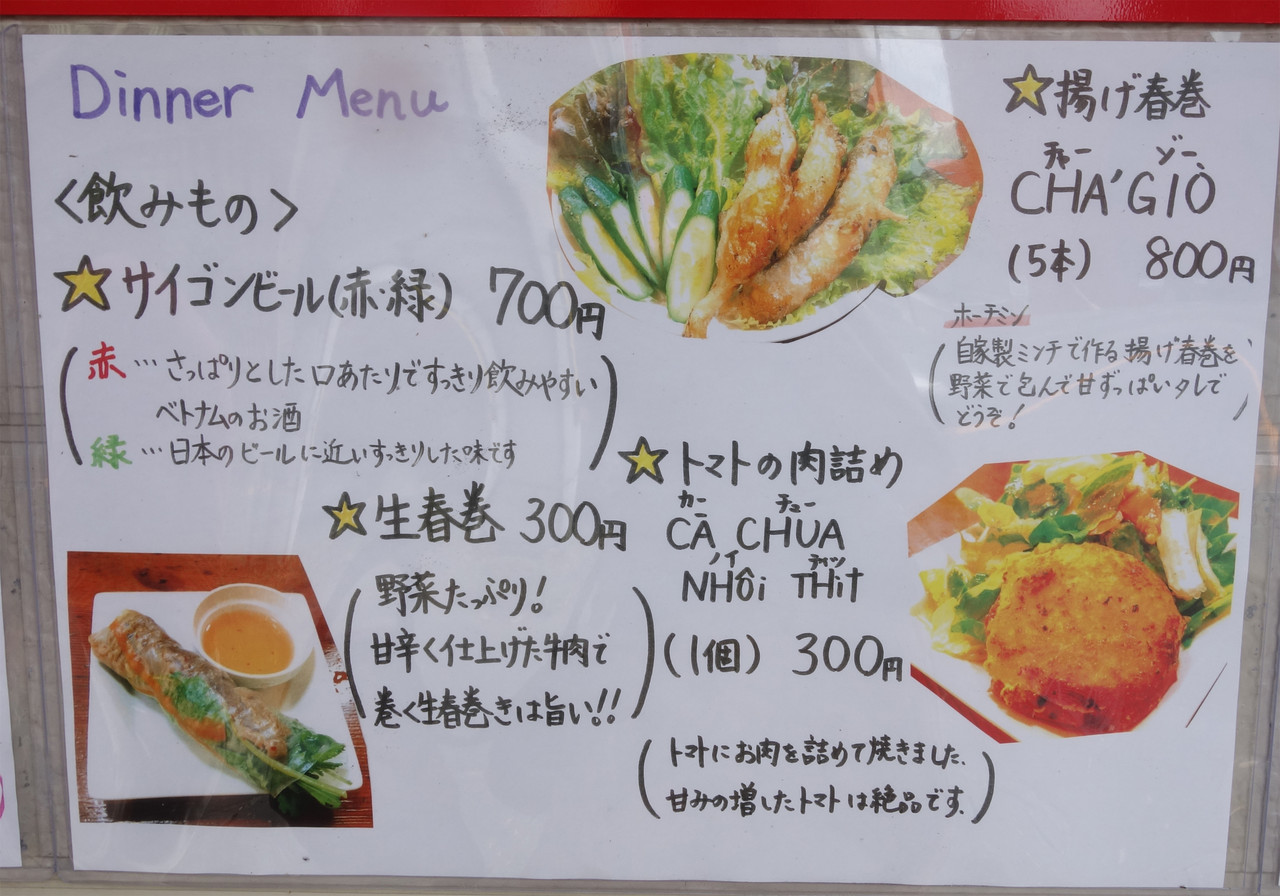 Dinner Menu
<飲みもの>
☆サイゴンビール(赤・緑) 700円
(赤…さっぱりとした口あたりですっきり飲みやすい
ベトナムのお酒
緑…日本のビールに近いすっきりした味です)
☆生春巻 300円
(野菜たっぷり!
甘辛く仕上げた牛肉で
巻く生春巻きは旨い!!)
☆揚げ春巻
チャー ゾー
CHẢ GIÒ
(5本) 800円
ホーチミン
(自家製ミンチで作る揚げ春巻を
野菜で包んで甘ずっぱいタレで
どうぞ!)
☆トマトの肉詰め
カー チュー
CÀ CHUA
ノイ ティッ
NHôi THit
(1個) 300円
(トマトにお肉を詰めて焼きました、
甘みの増したトマトは絶品です。)